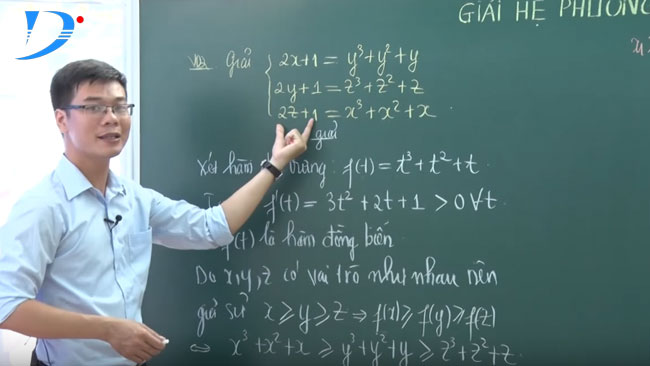 GIẢI HỆ PHƯƠNG
VD2. Giải
2x+1 = y³+y²+y
2y+1 = z³+z²+z
2z+1 = x³+x²+x.
giải
Xét hàm trưng: f(t) = t³+t²+t.
f'(t) = 3t²+2t+1 > 0 ∀t.
f(t) là hàm đồng biến.
Do x,y,z có vai trò như nhau nên
giả sử x ≥ y ≥ z ⇒ f(x) ≥ f(y) ≥ f(z)
⇔ x³+x²+x ≥ y³+y²+y ≥ z³+z²+z.